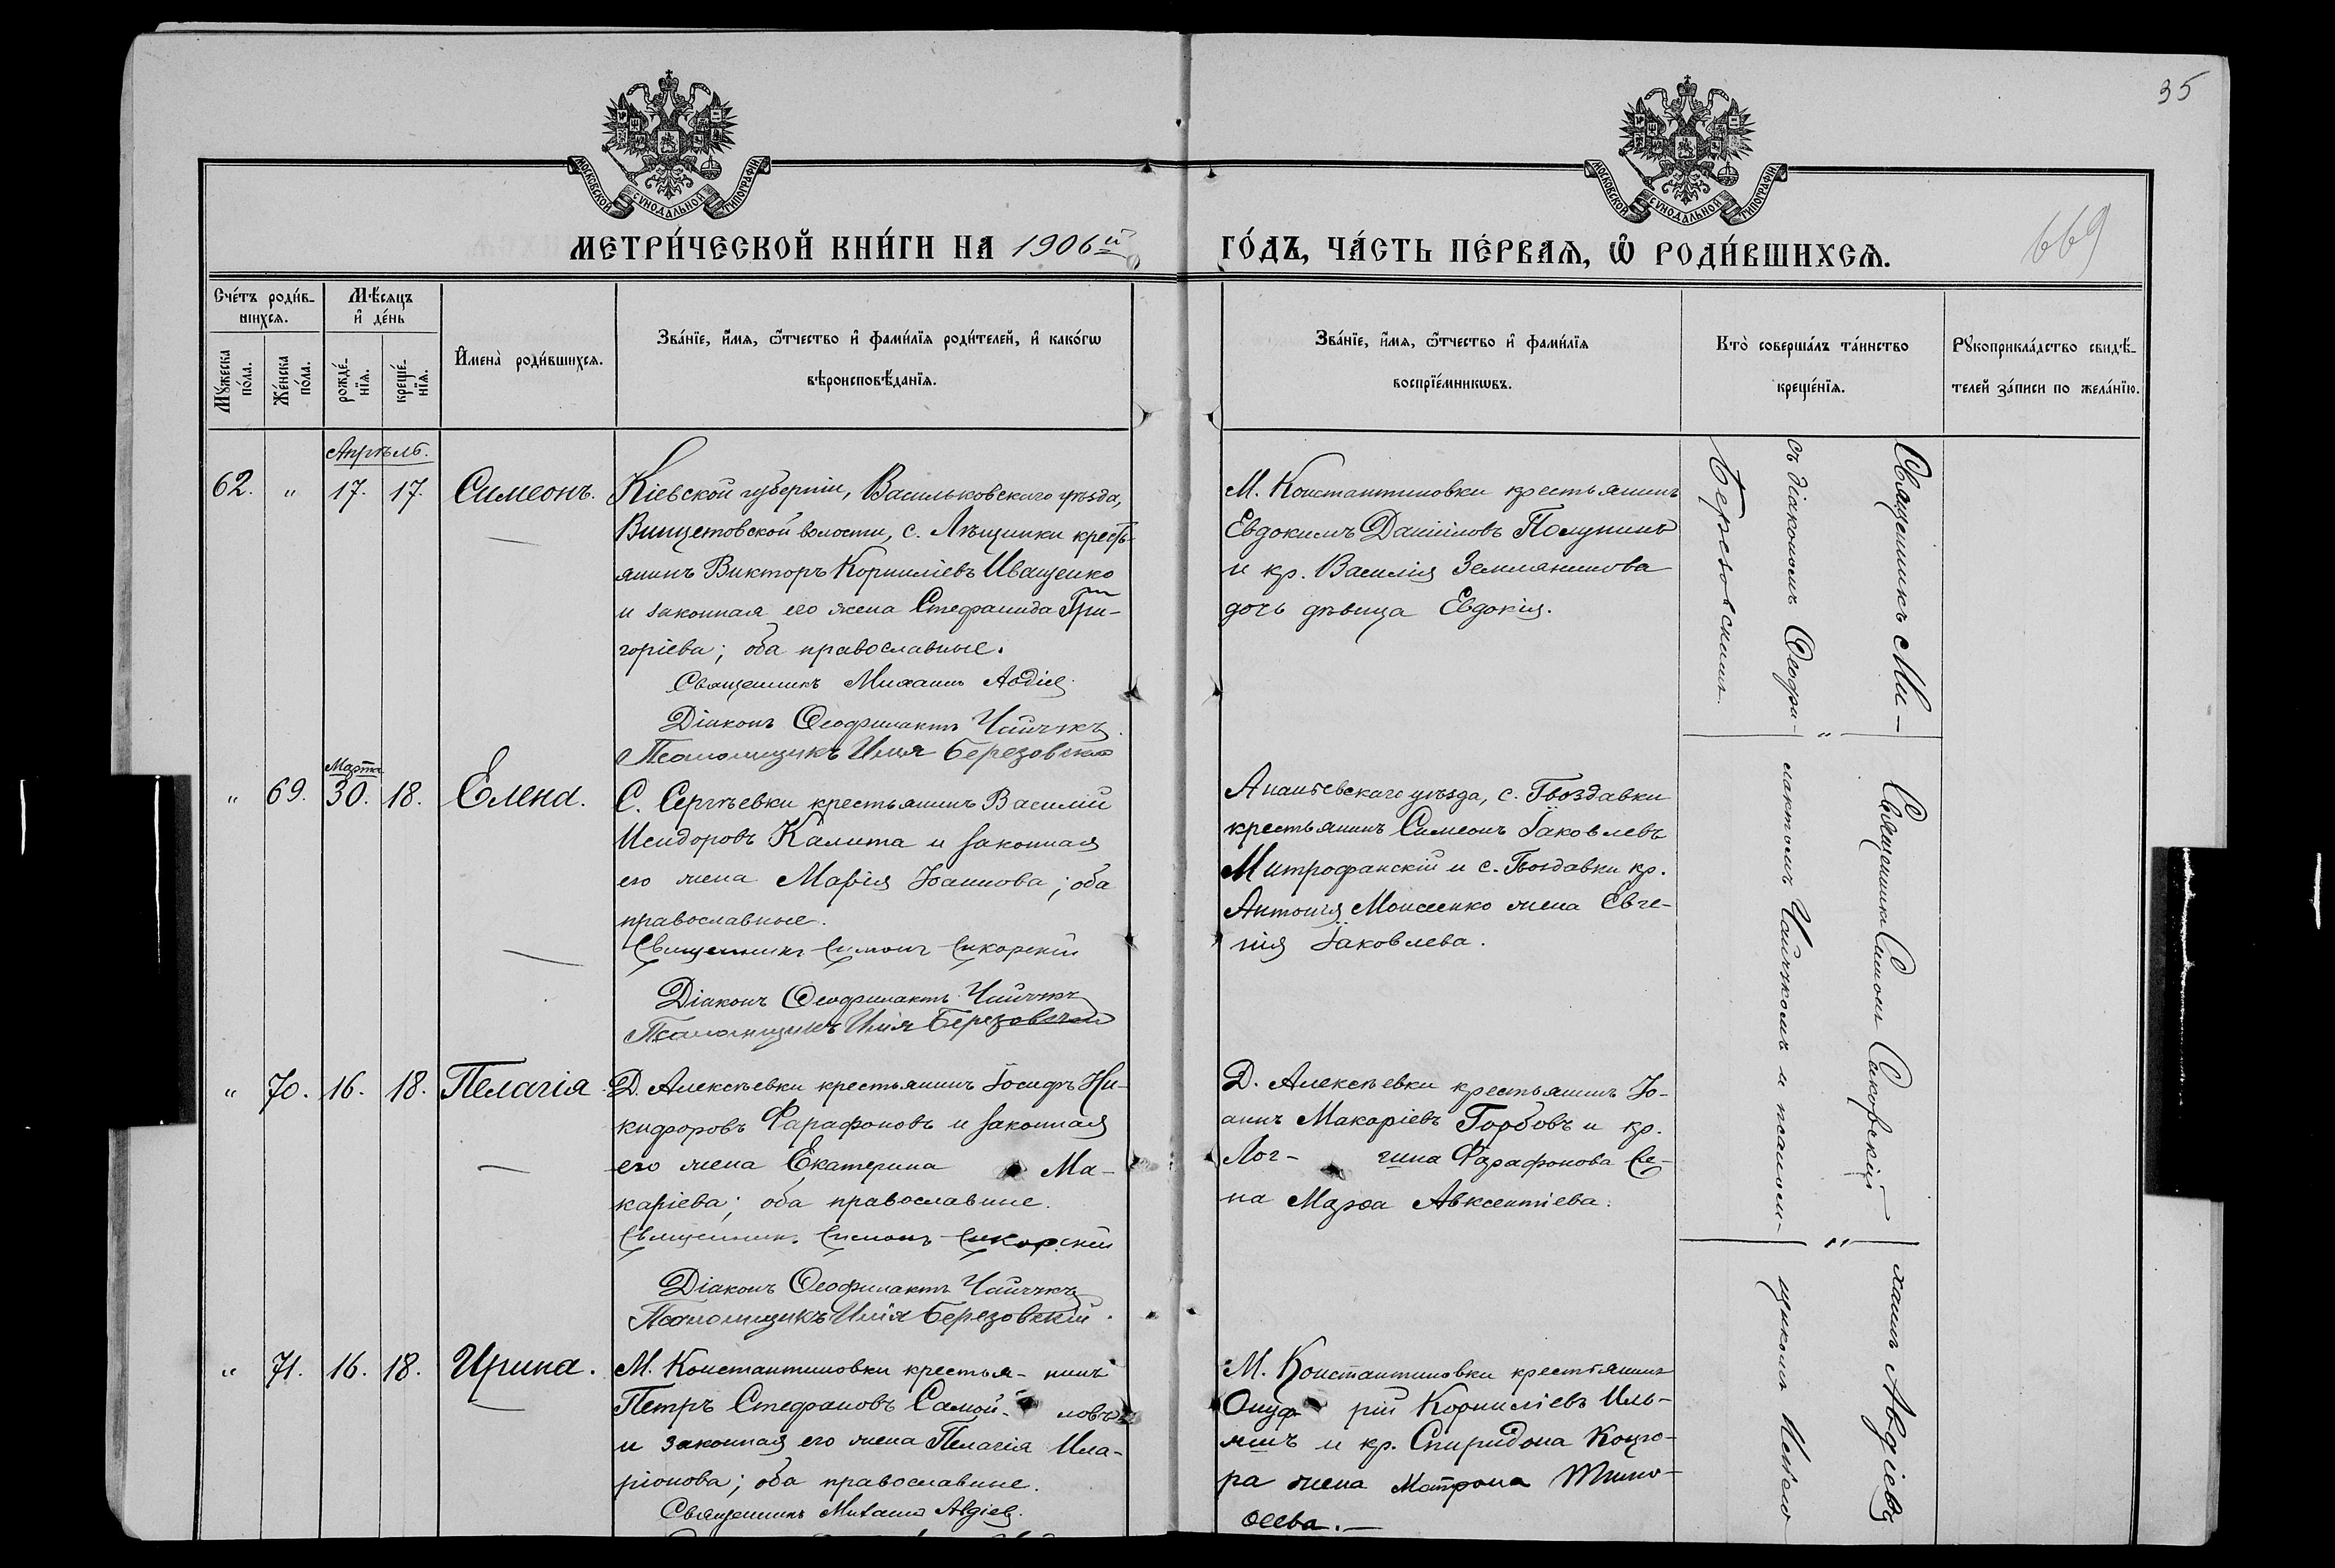 35
669
МОСКОВСКОЙ СѴНОДАЛЬНОЙ ТИПОГРАФІИ
МОСКОВСКОЙ СѴНОДАЛЬНОЙ ТИПОГРАФІИ
МЕТРИ́ЧЕСКОЙ КНИ́ГИ НА 1906й
ГО́ДЪ, ЧА́СТЬ ПЕ́РВАѦ, Ѽ РОДИ́ВШИХСѦ.
Сче́тъ роди́в-
шихсѧ.
Мꙋ́жеска
по́ла.
Же́нска
по́ла.
Мѣ́сѧцъ
и҆ де́нь
рожде́-
нїѧ.
креще́-
нїѧ.
И҆мена̀ роди́вшихсѧ.
Зва́нїе, и҆́мѧ, ѻ҆́тчество и҆ фами́лїѧ роди́телей, и҆ како́гѡ
вѣроисповѣ́данїѧ.
Зва́нїе, и҆́мѧ, ѻ҆́тчество и҆ фами́лїѧ
воспрїе́мникѡвъ.
Кто̀ соверша́лъ та́инство
креще́нїѧ.
Рꙋкоприкла́дство свидѣ́-
телей за́писи по жела́нїю.
Апрѣль.
62. " 17. 17. Симеонъ.
Кіевской губерніи, Васильковскаго уѣзда,
Винцетовской волости, с. Лѣщинки кресть-
янинъ Викторъ Корниліевъ Иващенко
и законная его жена Стефанида Гри-
горіева; оба православные.
Священникъ Михаилъ Авдіев
Діаконъ Ѳеофилактъ Чайчукъ.
Псаломщикъ Илія Березовскій
М. Константиновки крестьянинъ
Евдокимъ Даніиловъ Полупинъ
и кр. Василія Землянинова
дочь дѣвица Евдокія.
Мартъ
" 69. 30. 18. Елена.
С. Сергѣевки крестьянинъ Василій
Исидоровъ Калита и законная
его жена Марія Іоаннова; оба
православные.
Священникъ Симонъ Сикорскій
Діаконъ Ѳеофилактъ Чайчукъ
Псаломщикъ Илія Березовскій
Ананьевскаго уѣзда, с. Гвоздавки
крестьянинъ Симеонъ Іаковлевъ
Митрофанскій и с. Гвоздавки кр.
Антонія Моисеенко жена Евге-
нія Іаковлева.
" 70. 16. 18. Пелагія
Д. Алексѣевки крестьянинъ Іосифъ Ни-
кифоровъ Фарафоновъ и законная
его жена Екатерина Ма-
каріева; оба православные.
Священник. Симонъ Сикорскій
Діаконъ Ѳеофилактъ Чайчукъ
Псаломщикъ Илія Березовскій.
Д. Алексѣевки крестьянинъ Іо-
аннъ Макаріевъ Горбовъ и кр.
Лог- гина Фарафонова же-
на Марѳа Авксентіева.
" 71. 16. 18. Ирина.
М. Константиновки крестья- нинъ
Петръ Стефановъ Самой- ловъ
и законная его жена Пелагія Ила-
ріонова; оба православные.
Священникъ Михаилъ Авдіев.
М. Константиновки крестьянинъ
Онуф- рій Корниліевъ Иль-
яшъ и кр. Спиридона Коцю-
ра жена Матрона Тимо-
ѳеева.—
Священникъ Ми-
" Священникъ Симонъ Сикорскій
" хаилъ Авдіевъ
съ діакономъ Ѳеофи-
лактомъ Чайчукомъ и псаломщикомъ Иліею
Березовскимъ.